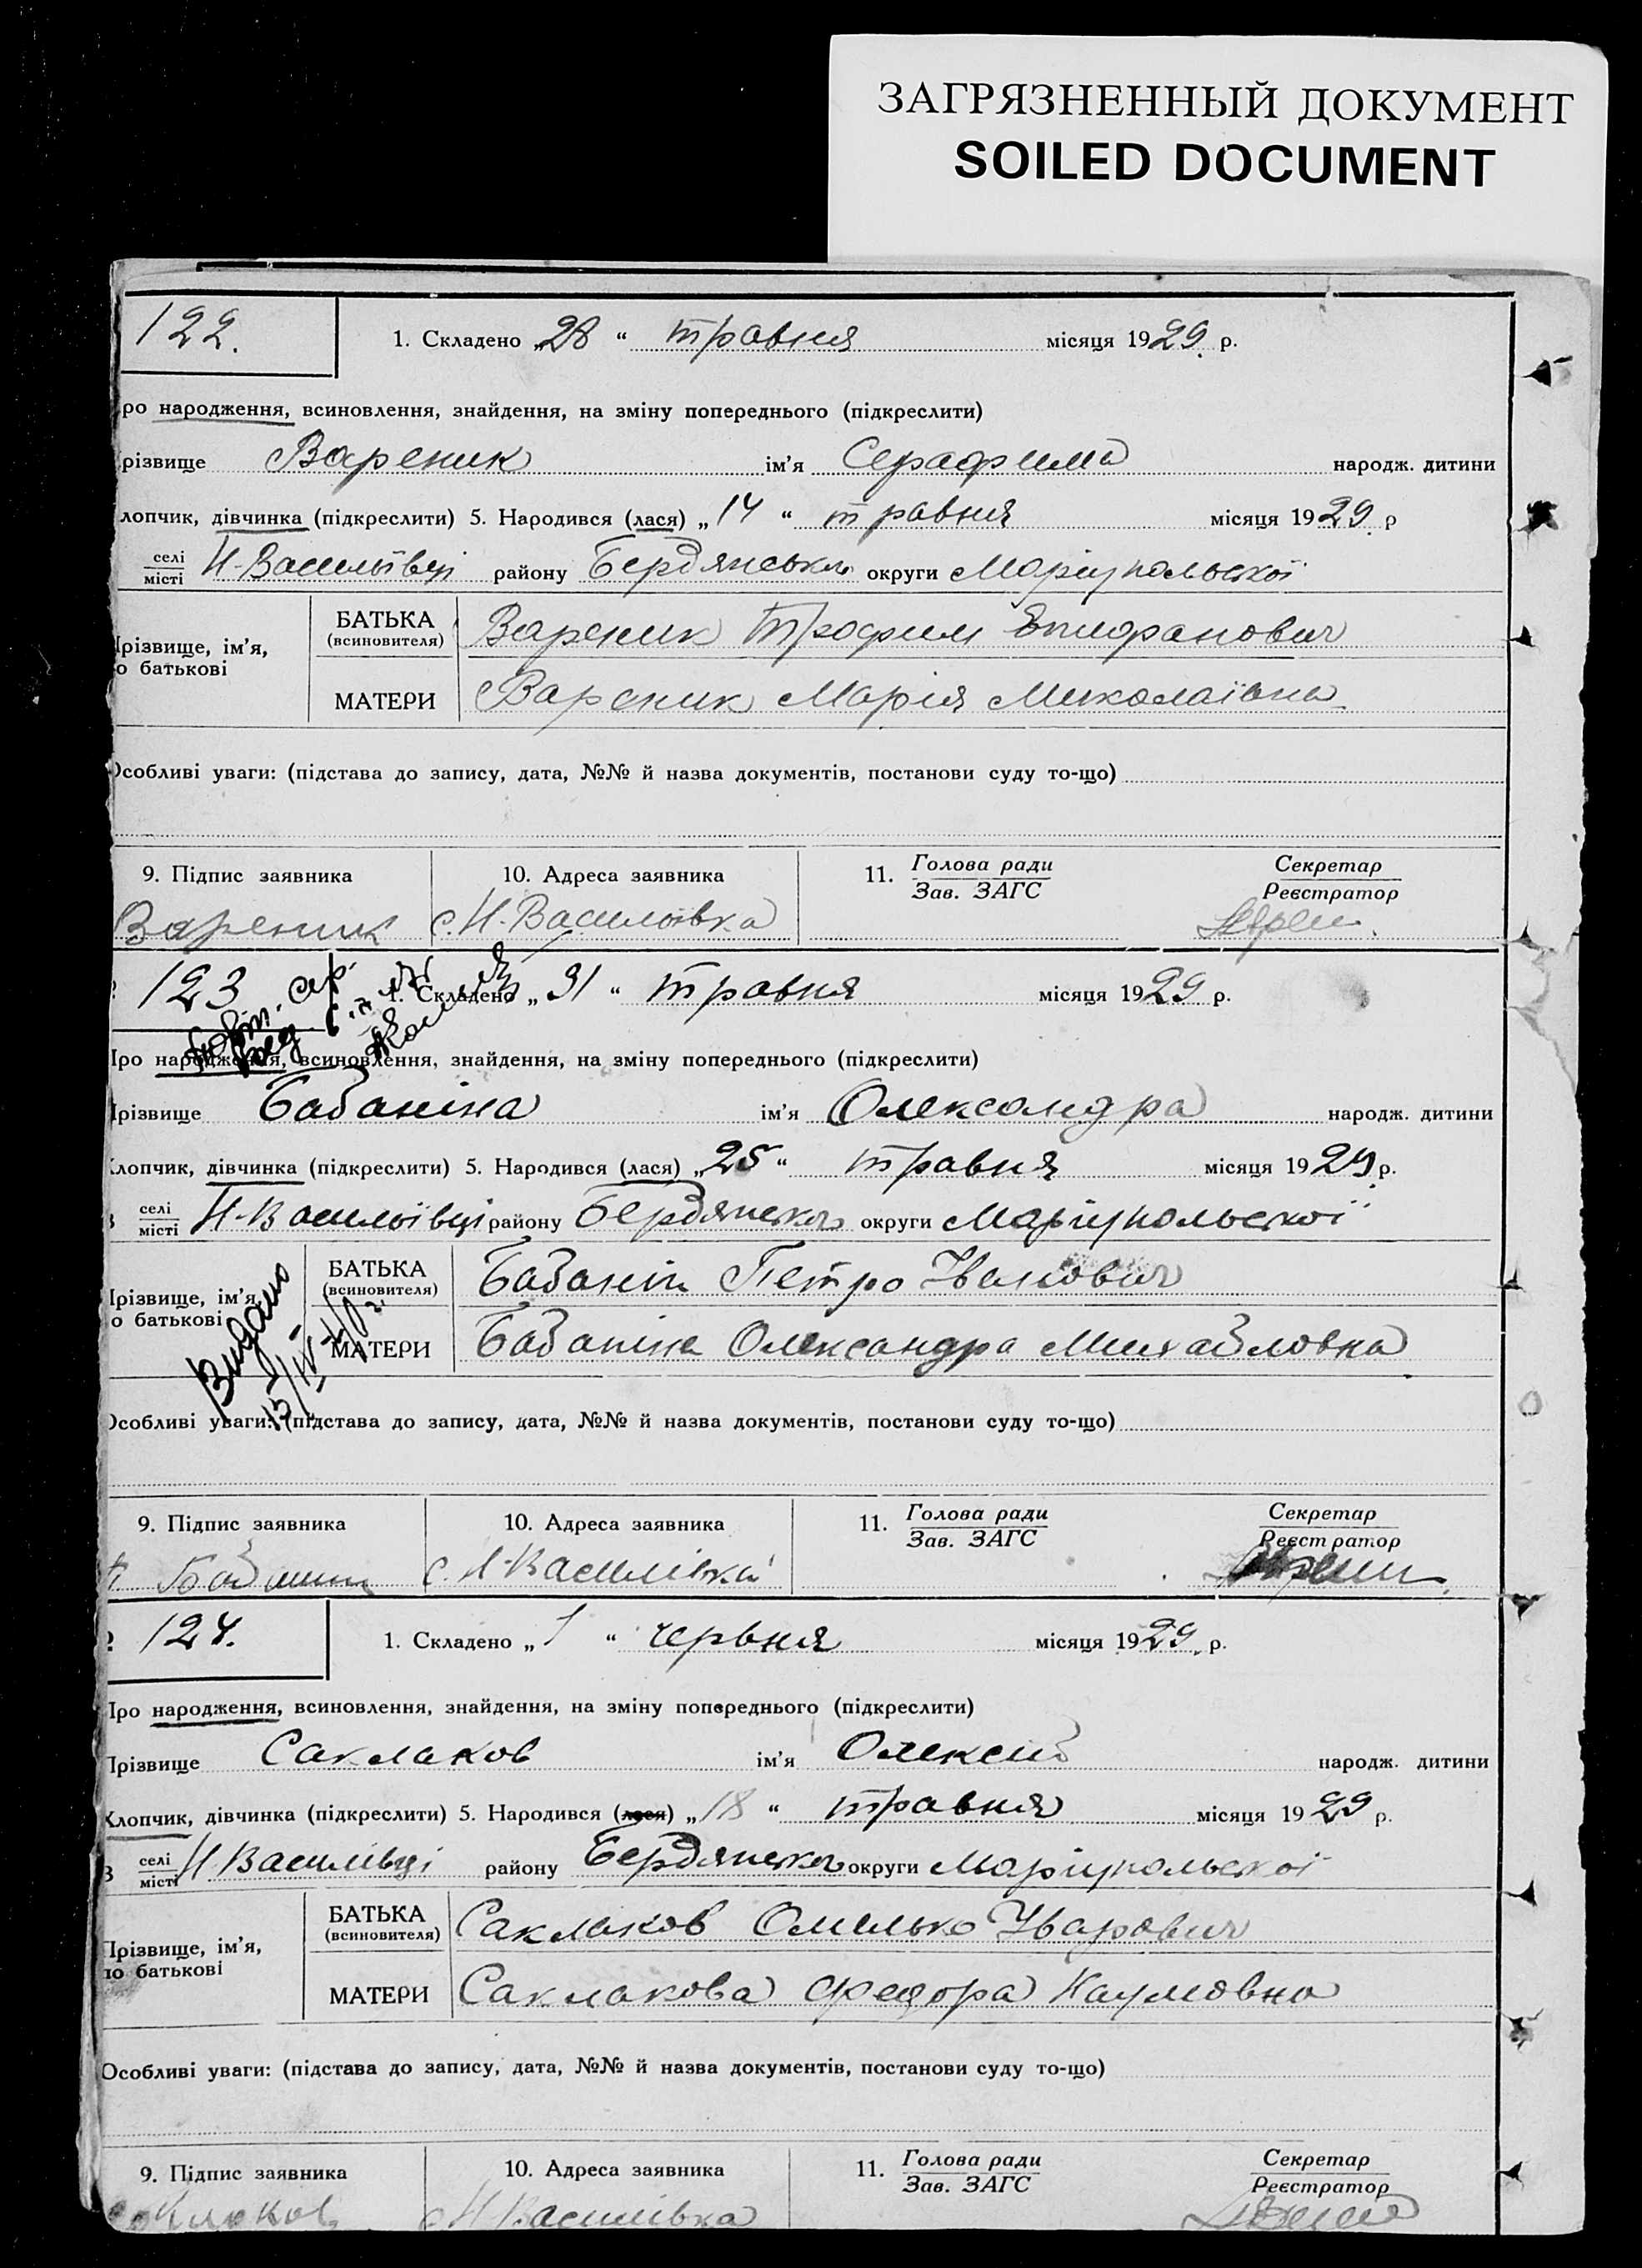 ЗАГРЯЗНЕННЫЙ ДОКУМЕНТ
SOILED DOCUMENT
122.
1. Складено „28 “ травня місяця 1929. р.
ро народження, всиновлення, знайдення, на зміну попереднього (підкреслити)
різвище Вареник ім'я Серафима народж. дитини
лопчик, дівчинка (підкреслити) 5. Народився (лася) „ 14 “ травня місяця 1929. р
селі
місті Н-Васильївці району Бердянськ округи Маріупольської
різвище, ім'я,
о батькові
БАТЬКА
(всиновителя) Вареник Трофим Епифанович
МАТЕРИ Вареник Марія Миколаївна
Особливі уваги: (підстава до запису, дата, №№ й назва документів, постанови суду то-що)
9. Підпис заявника 10. Адреса заявника 11. Голова ради
Зав. ЗАГС Секретар
Реєстратор
Вареник с. Н-Васильївка
123 1. Складено „ 31 “ травня місяця 1929. р.
Про народження, всиновлення, знайдення, на зміну попереднього (підкреслити)
Прізвище Бабаніна ім'я Олександра народж. дитини
Хлопчик, дівчинка (підкреслити) 5. Народився (лася) „25 “ травня місяця 1929 р.
в селі
місті Н-Васильївці району Бердянсько округи Маріупольської
Прізвище, ім'я,
о батькові
БАТЬКА
(всиновителя) Бабанін Петро Іванович
МАТЕРИ Бабаніна Олександра Михайловна
Видано
Особливі уваги: (підстава до запису, дата, №№ й назва документів, постанови суду то-що)
9. Підпис заявника 10. Адреса заявника 11. Голова ради
Зав. ЗАГС Секретар
Реєстратор
с. Н-Василівка
124. 1. Складено „ 1 “ червня місяця 1929. р.
Про народження, всиновлення, знайдення, на зміну попереднього (підкреслити)
Прізвище Саклаков ім'я Олексій народж. дитини
Хлопчик, дівчинка (підкреслити) 5. Народився (лася) „ 18 “ травня місяця 1929 р.
в селі
місті Н Василівці району Бердянсько округи Маріупольської
Прізвище, ім'я,
по батькові
БАТЬКА
(всиновителя) Саклаков Омелько Уварович
МАТЕРИ Саклакова Федора Наумовна
Особливі уваги: (підстава до запису, дата, №№ й назва документів, постанови суду то-що)
9. Підпис заявника 10. Адреса заявника 11. Голова ради
Зав. ЗАГС Секретар
Реєстратор
Саклаков с Н Василівка